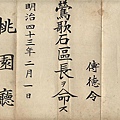 傳德令
鶯歌石區長ヲ命ス
明治四十三年二月一日
桃園廳